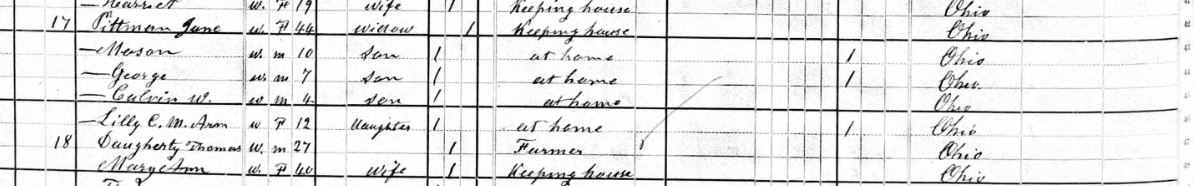 — Harriet w. F 19 wife 1 Keeping house Ohio
17 Pittman Jane w. F 44 widow 1 Keeping house Ohio
— Mason w. m 10 Son 1 at home 1 Ohio
— George w. m 7 Son 1 at home 1 Ohio.
— Calvin W. w m 4 Son 1 at home Ohio
— Lilly C. M. Arm w F 12 daughter 1 at home 1 Ohio
18 Daugherty Thomas w. m 27 1 Farmer Ohio
— Mary Ann w. F 40 wife 1 Keeping house Ohio